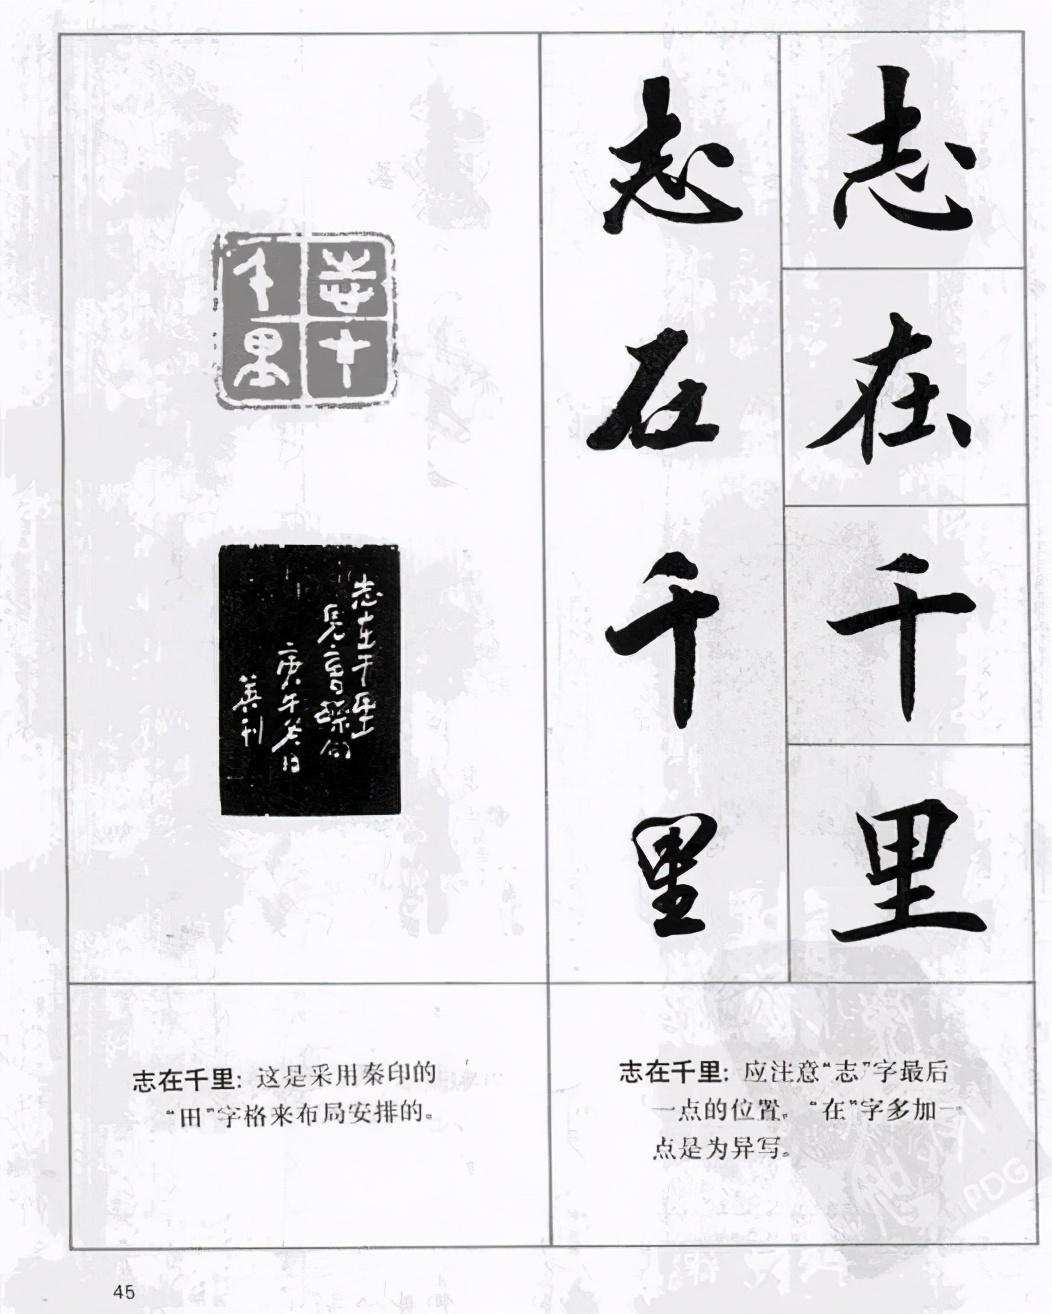 志
在
千
里
志在千里
志在千里
志在千里
曹操句
庚午冬日
志在千里：这是采用秦印的
“田”字格来布局安排的。
志在千里：应注意“志”字最后
一点的位置。“在”字多加一
点是为异写。
PDG
45